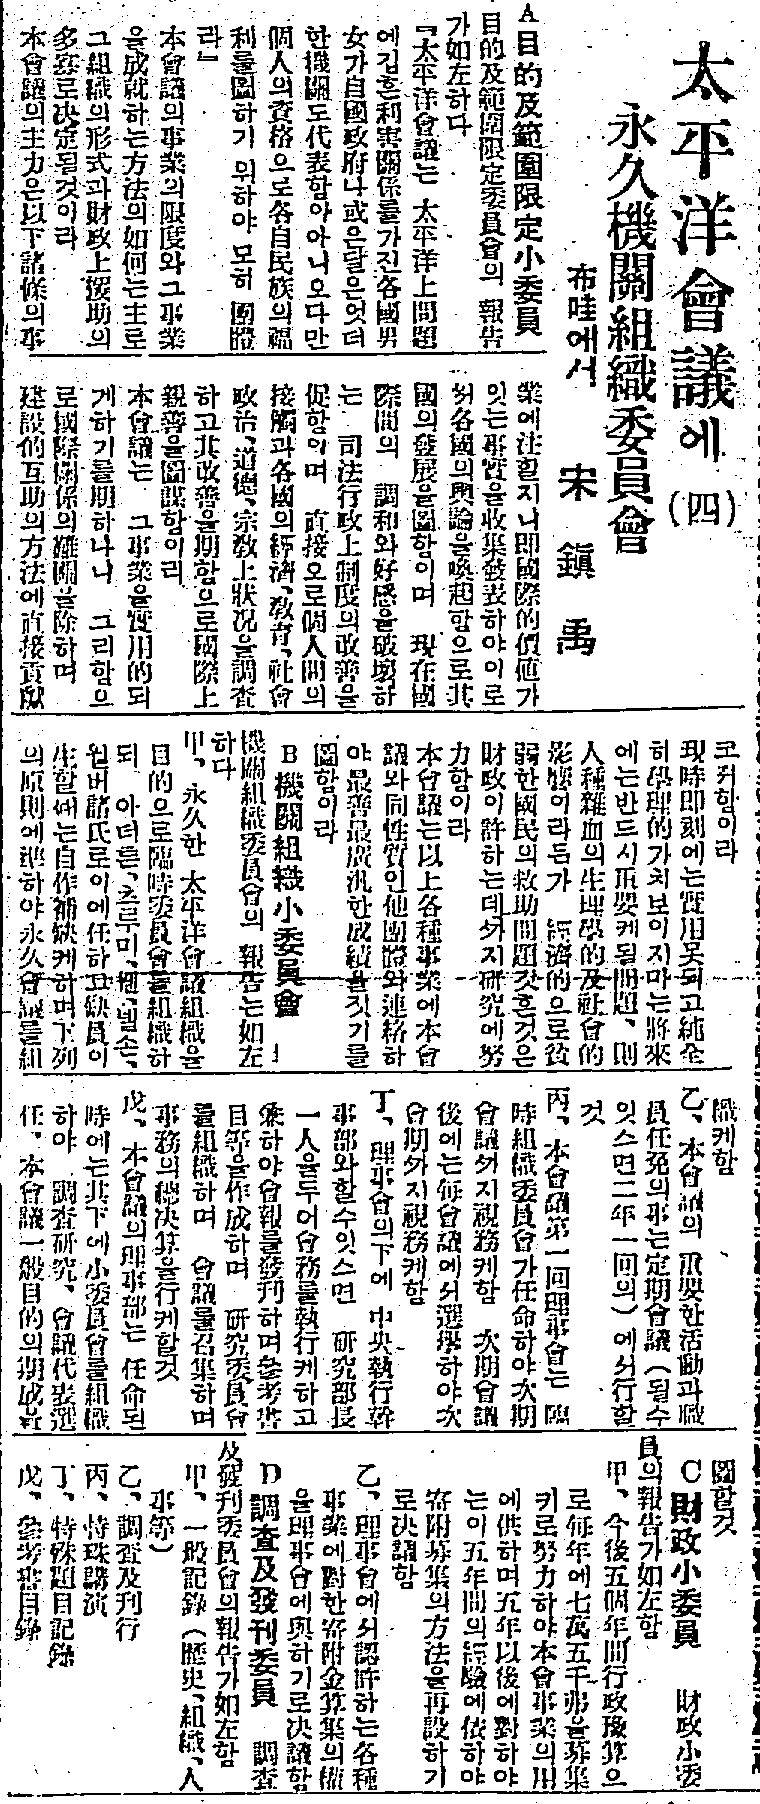 太平洋會議에 (四)
永久機關組織委員會
布哇에서 宋鎭禹
A 目的及範圍限定小委員
目的及範圍限定委員會의 報告
가如左하다
『太平洋會議는 太平洋上問題
에깁흔利害關係를가진各國男
女가自國政府나 或은달은엇더
한機關도代表함아아니오다만
個人의資格으로各自民族의福
利를圖하기 위하야 모히 團體
라』
本會議의事業의限度와그事業
을成就하는方法의如何는主로
그組織의形式과財政上援助의
多寡로決定될것이라
本會議의主力은以下諸條의事
業에注할지니即國際的價値가
잇는事實을收集發表하야이로
써各國의輿論을喚起함으로其
國의發展을圖함이며 現在國
際間의 調和와好感을破壞하
는 司法行政上制度의改善을
促함이며 直接으로個人間의
接觸과各國의經濟、敎育、社會
政治、道德、宗敎上狀况을調査
하고其改善을期함으로國際上
親善을圖謀함이라
本會議는 그事業을實用的되
게하기를期하나니 그리함으
로國際關係의難關을除하며
建設的互助의方法에直接貢獻
코저함이라
現時即刻에는實用못되고純全
히學理的가치보이지마는將來
에는반드시重要케될問題、則
人種雜血의生理學的及社會的
影響이라든가 經濟的으로貧
弱한國民의救助問題갓흔것은
財政이許하는데까지硏究에努
力함이라
本會議는以上各種事業에本會
議와同性質인他團體와連絡하
야最善最廣汎한成績을짓기를
圖함이라
B 機關組織小委員會
機關組織委員會의 報告는如左
하다
甲、永久한 太平洋會議組織을
目的으로臨時委員會를組織하
되 아더튼、츠루미、、넬손、
윌버諸氏로이에任하고缺員이
生할때는自作補缺케하며下列
의原則에準하야永久會議를組
織케함
乙、本會議의 重要한活動과職
員任免의事는定期會議(될수
잇스면二年一回의)에서行할
것
丙、本會議第一回理事會는 臨
時組織委員會가任命하야次期
會議까지視務케함 次期會議
後에는每會議에서選擧하야次
會期까지視務케함
丁、理事會의下에 中央執行幹
事部와할수잇스면 硏究部長
一人을두어會務를執行케하고
兼하야會報를發刊하며參考書
目等을作成하며 硏究委員會
를組織하며 會議를召集하며
事務의總决算을行케할것
戊、本會議의理事部는 任命된
時에는其下에小委員會를組織
하야 調査硏究、會議代表選
任、本會議一般目的의期成을
圖할것
C 財政小委員 財政小委
員의報告가如左함
甲、今後五個年間行政豫算으
로每年에七萬五千弗을募集
키로努力하야本會事業의用
에供하며五年以後에對하야
는이五年間의經驗에依하야
寄附募集의方法을再設하기
로决議함
乙、理事會에서認許하는各種
事業에對한寄附金募集의權
을理事會에與하기로决議함
D 調査及發刊委員 調査
及發刊委員會의報告가如左함
甲、一般記錄(歷史、組織、人
事等)
乙、調査及刊行
丙、特殊講演
丁、特殊題目記錄
戊、參考書目錄